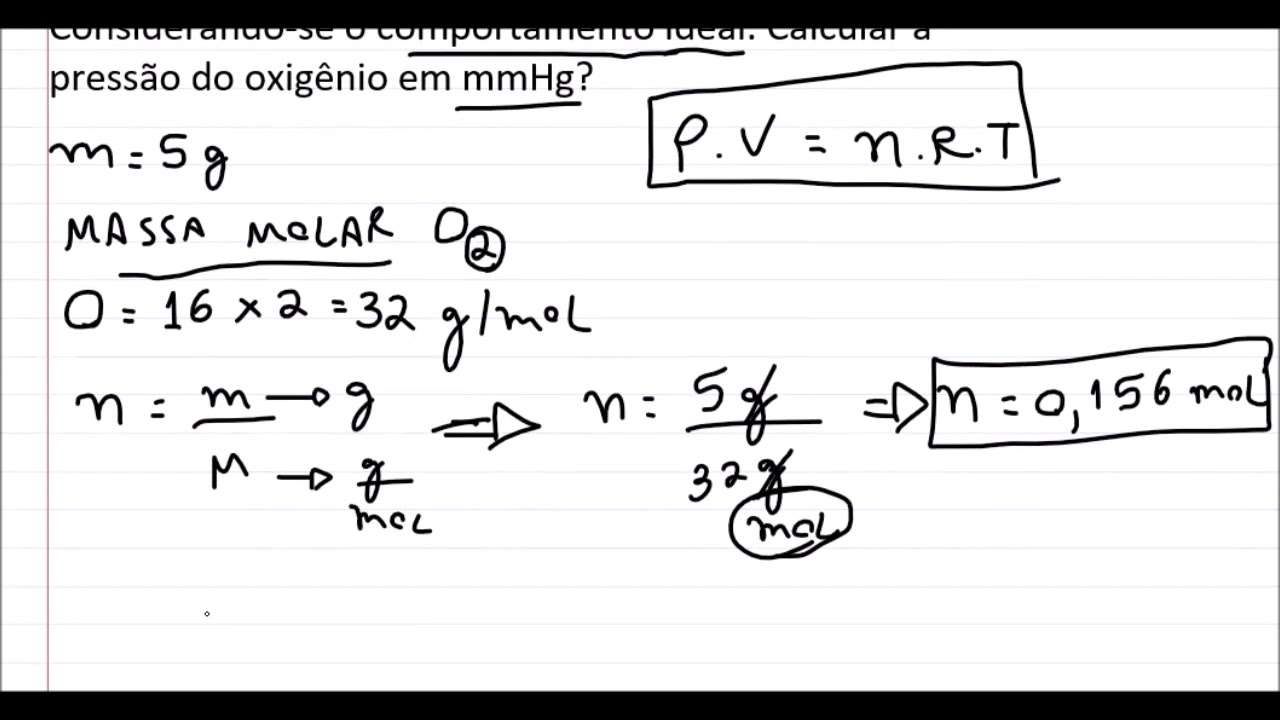 Considerando-se o comportamento ideal. Calcular a
pressão do oxigênio em mmHg?
P.V = n.R.T
m = 5 g
MASSA MOLAR O2
O = 16 x 2 = 32 g/mol
n = m → g ⇒ n = 5 g ⇒ n = 0,156 mol
M → g 32 g
mol mol